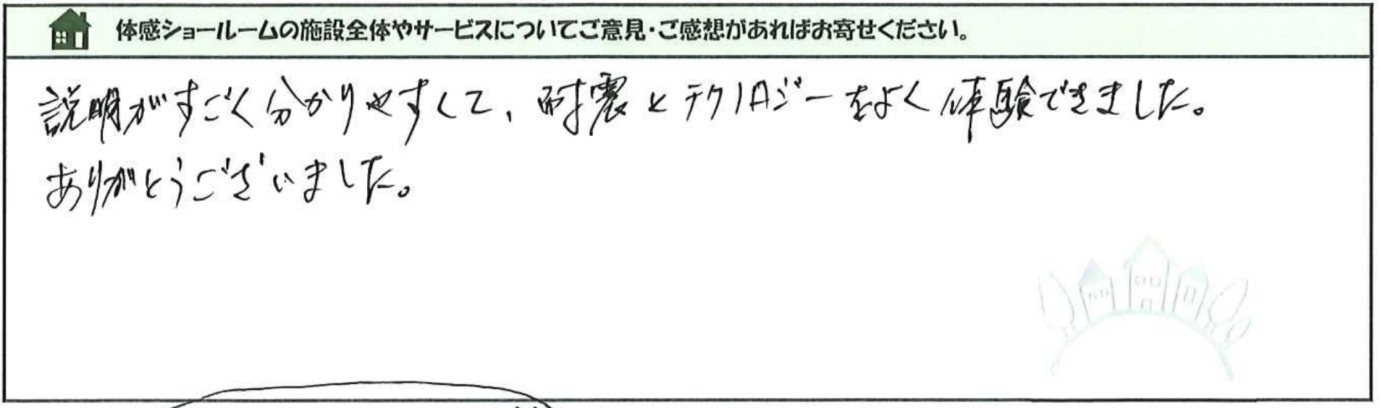 体感ショールームの施設全体やサービスについてご意見・ご感想があればお寄せください。
説明がすごく分かりやすくて、耐震とテクノロジーをよく体験できました。
ありがとうございました。